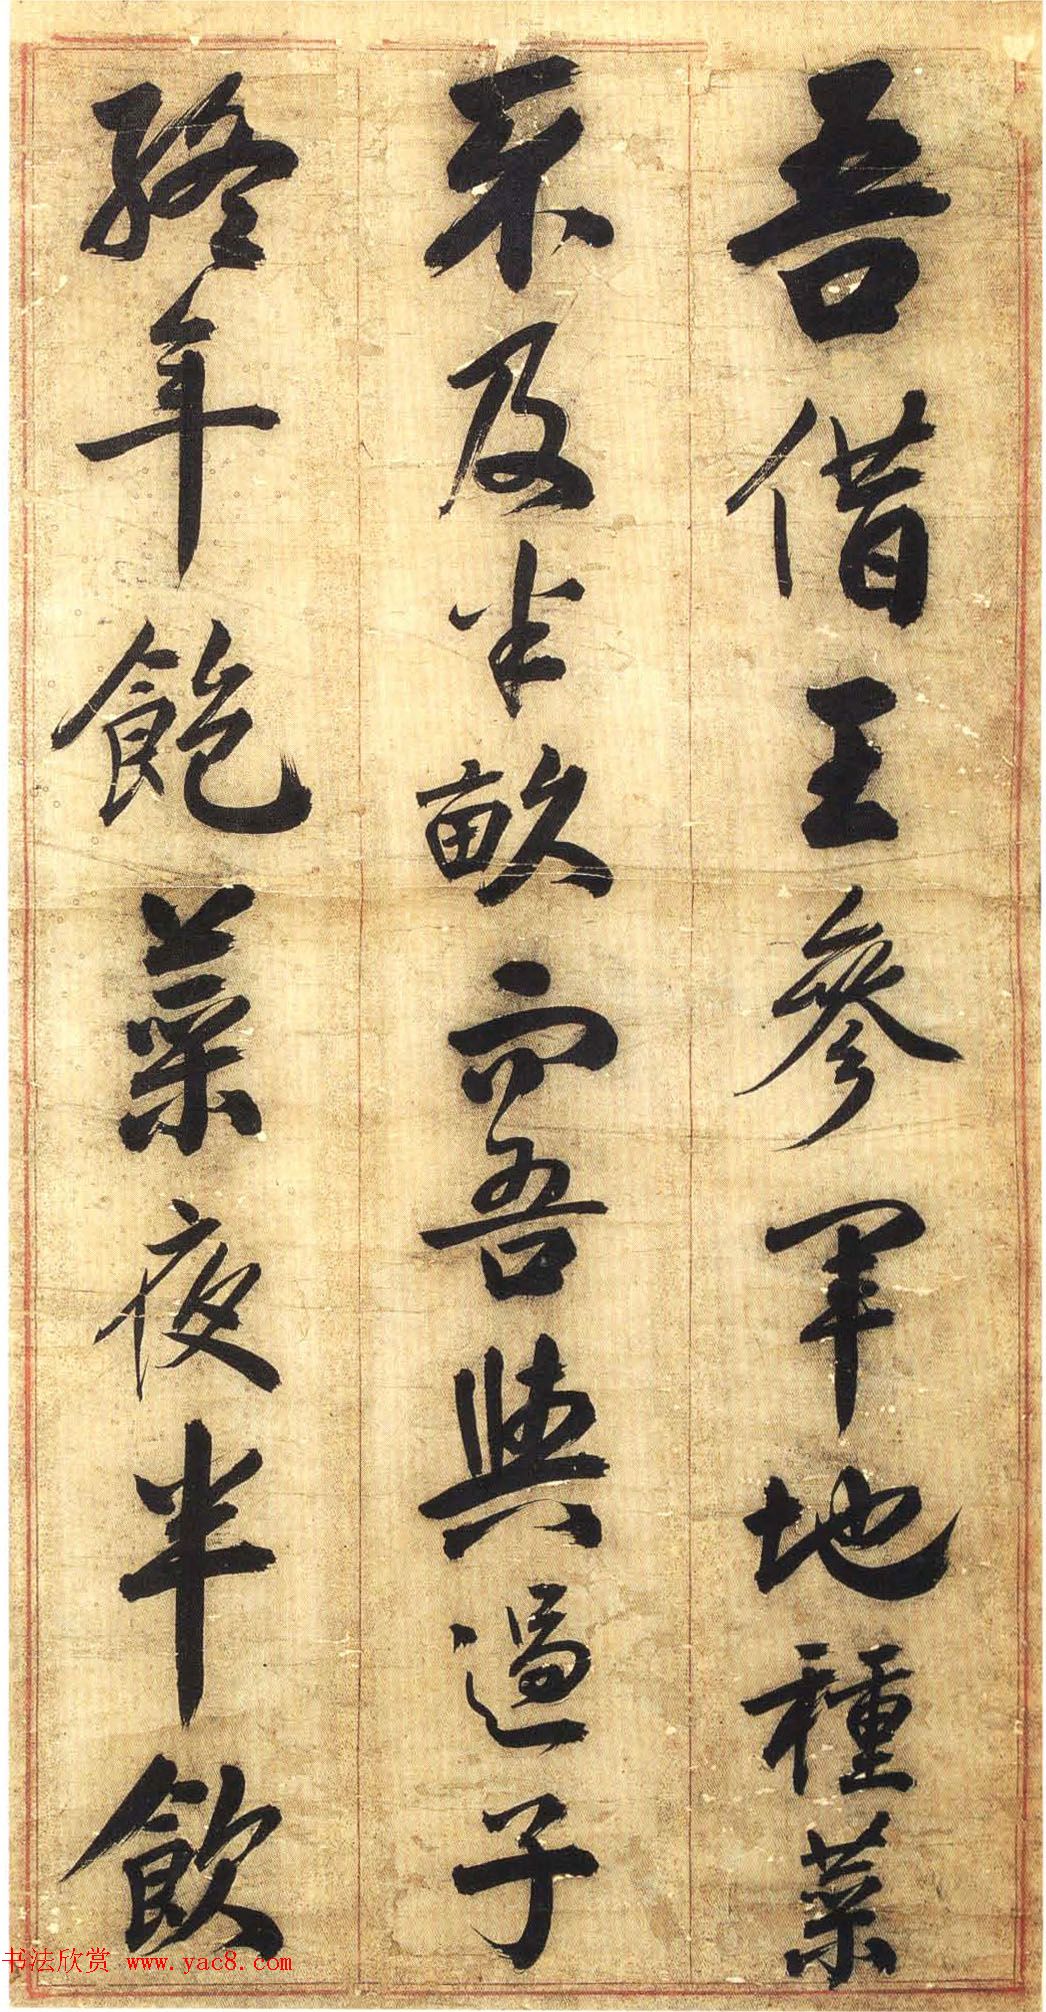 吾借王參軍地種菜
不及半畝而吾與過子
終年飽菜夜半飲
书法欣赏 www.yac8.com